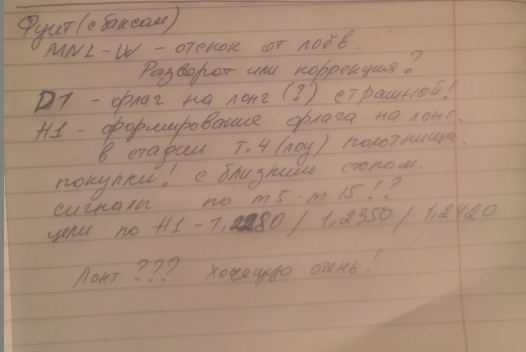 Фунт (с баксом)
MNL-W - отскок от лоёв.
Разворот или коррекция?
D1 - флаг на лонг (?) страшной!
H1 - формирование флага на лонг.
в стадии т.4 (лоу) полотнища.
покупки! с близким стопом.
сигналы по m5-m15!?
цели по H1 - 1,2280 / 1,2350 / 1,2420
Лонг ??? очень!